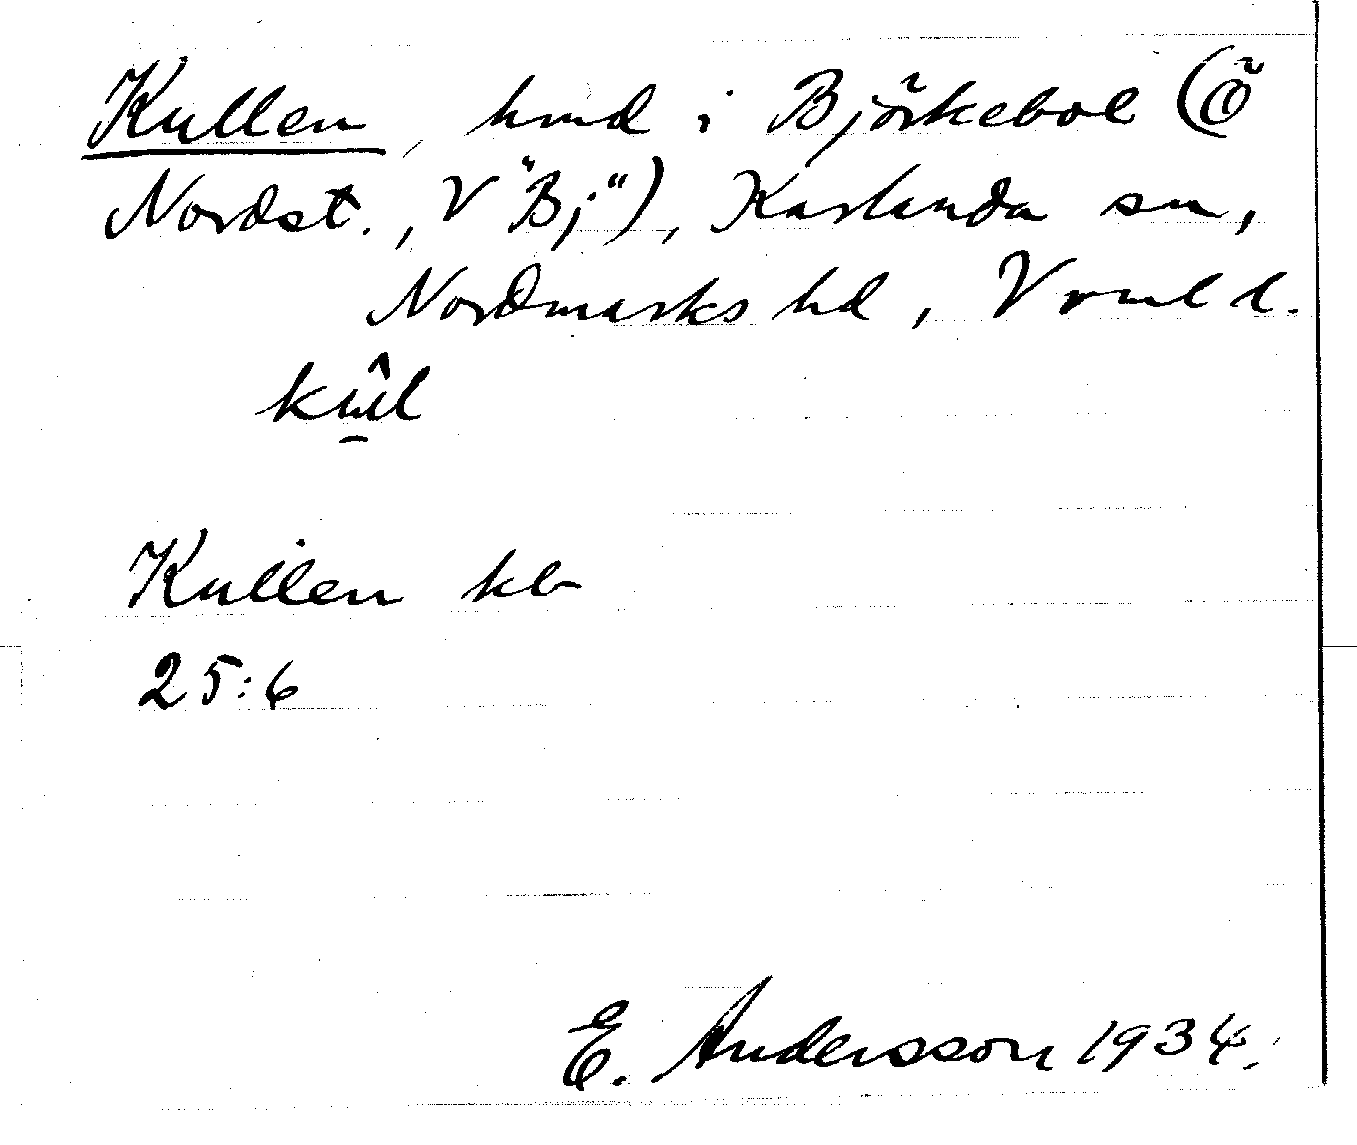 Kullen, hmd i Björkebol (Ö
Nordst., V "Bj"), Karlanda sn,
Nordmarks hd, Vrml l.
Kullen kb
25:6
E. Andersson 1934.